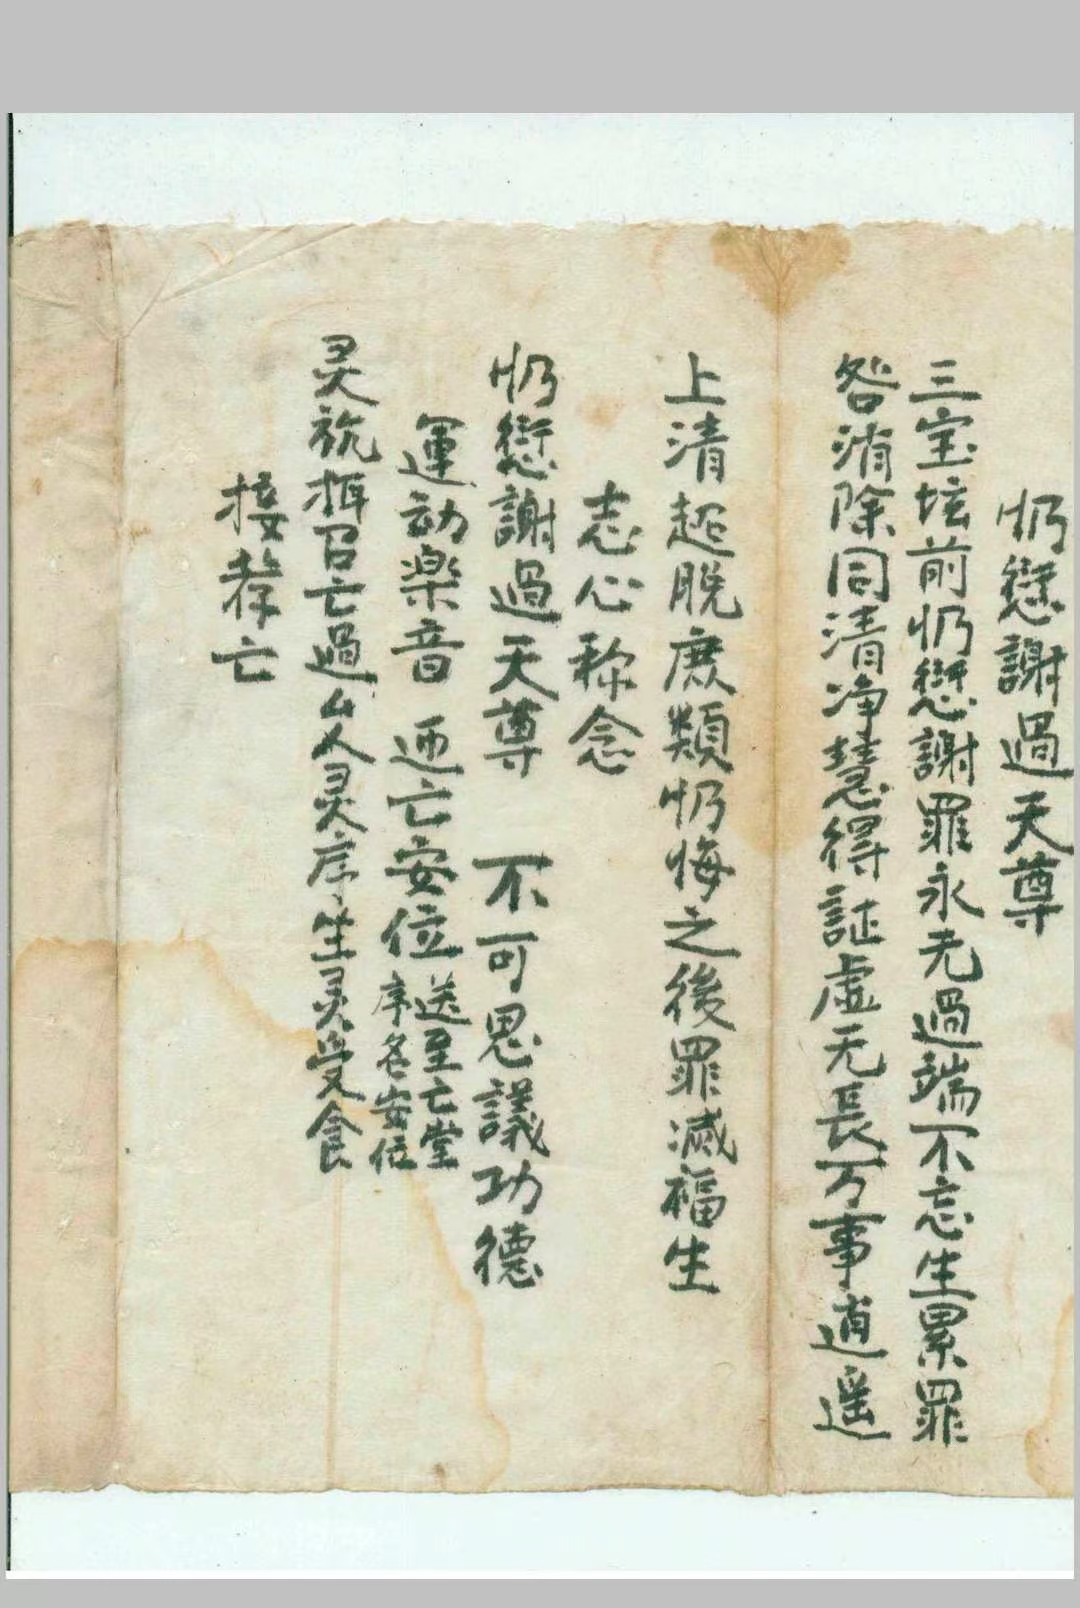 忉愆謝過天尊
三宝坛前忉愆謝罪永无過端不忘生累罪
咎消除同清净慧得証虚无長万事逍遥
上清超脱庶類忉悔之後罪滅福生
志心称念
忉愆謝過天尊 不可思議功德
運动楽音 迊亡安位 送至亡堂
序各安位
灵旐招召亡過 灵序生灵受食
接孝亡